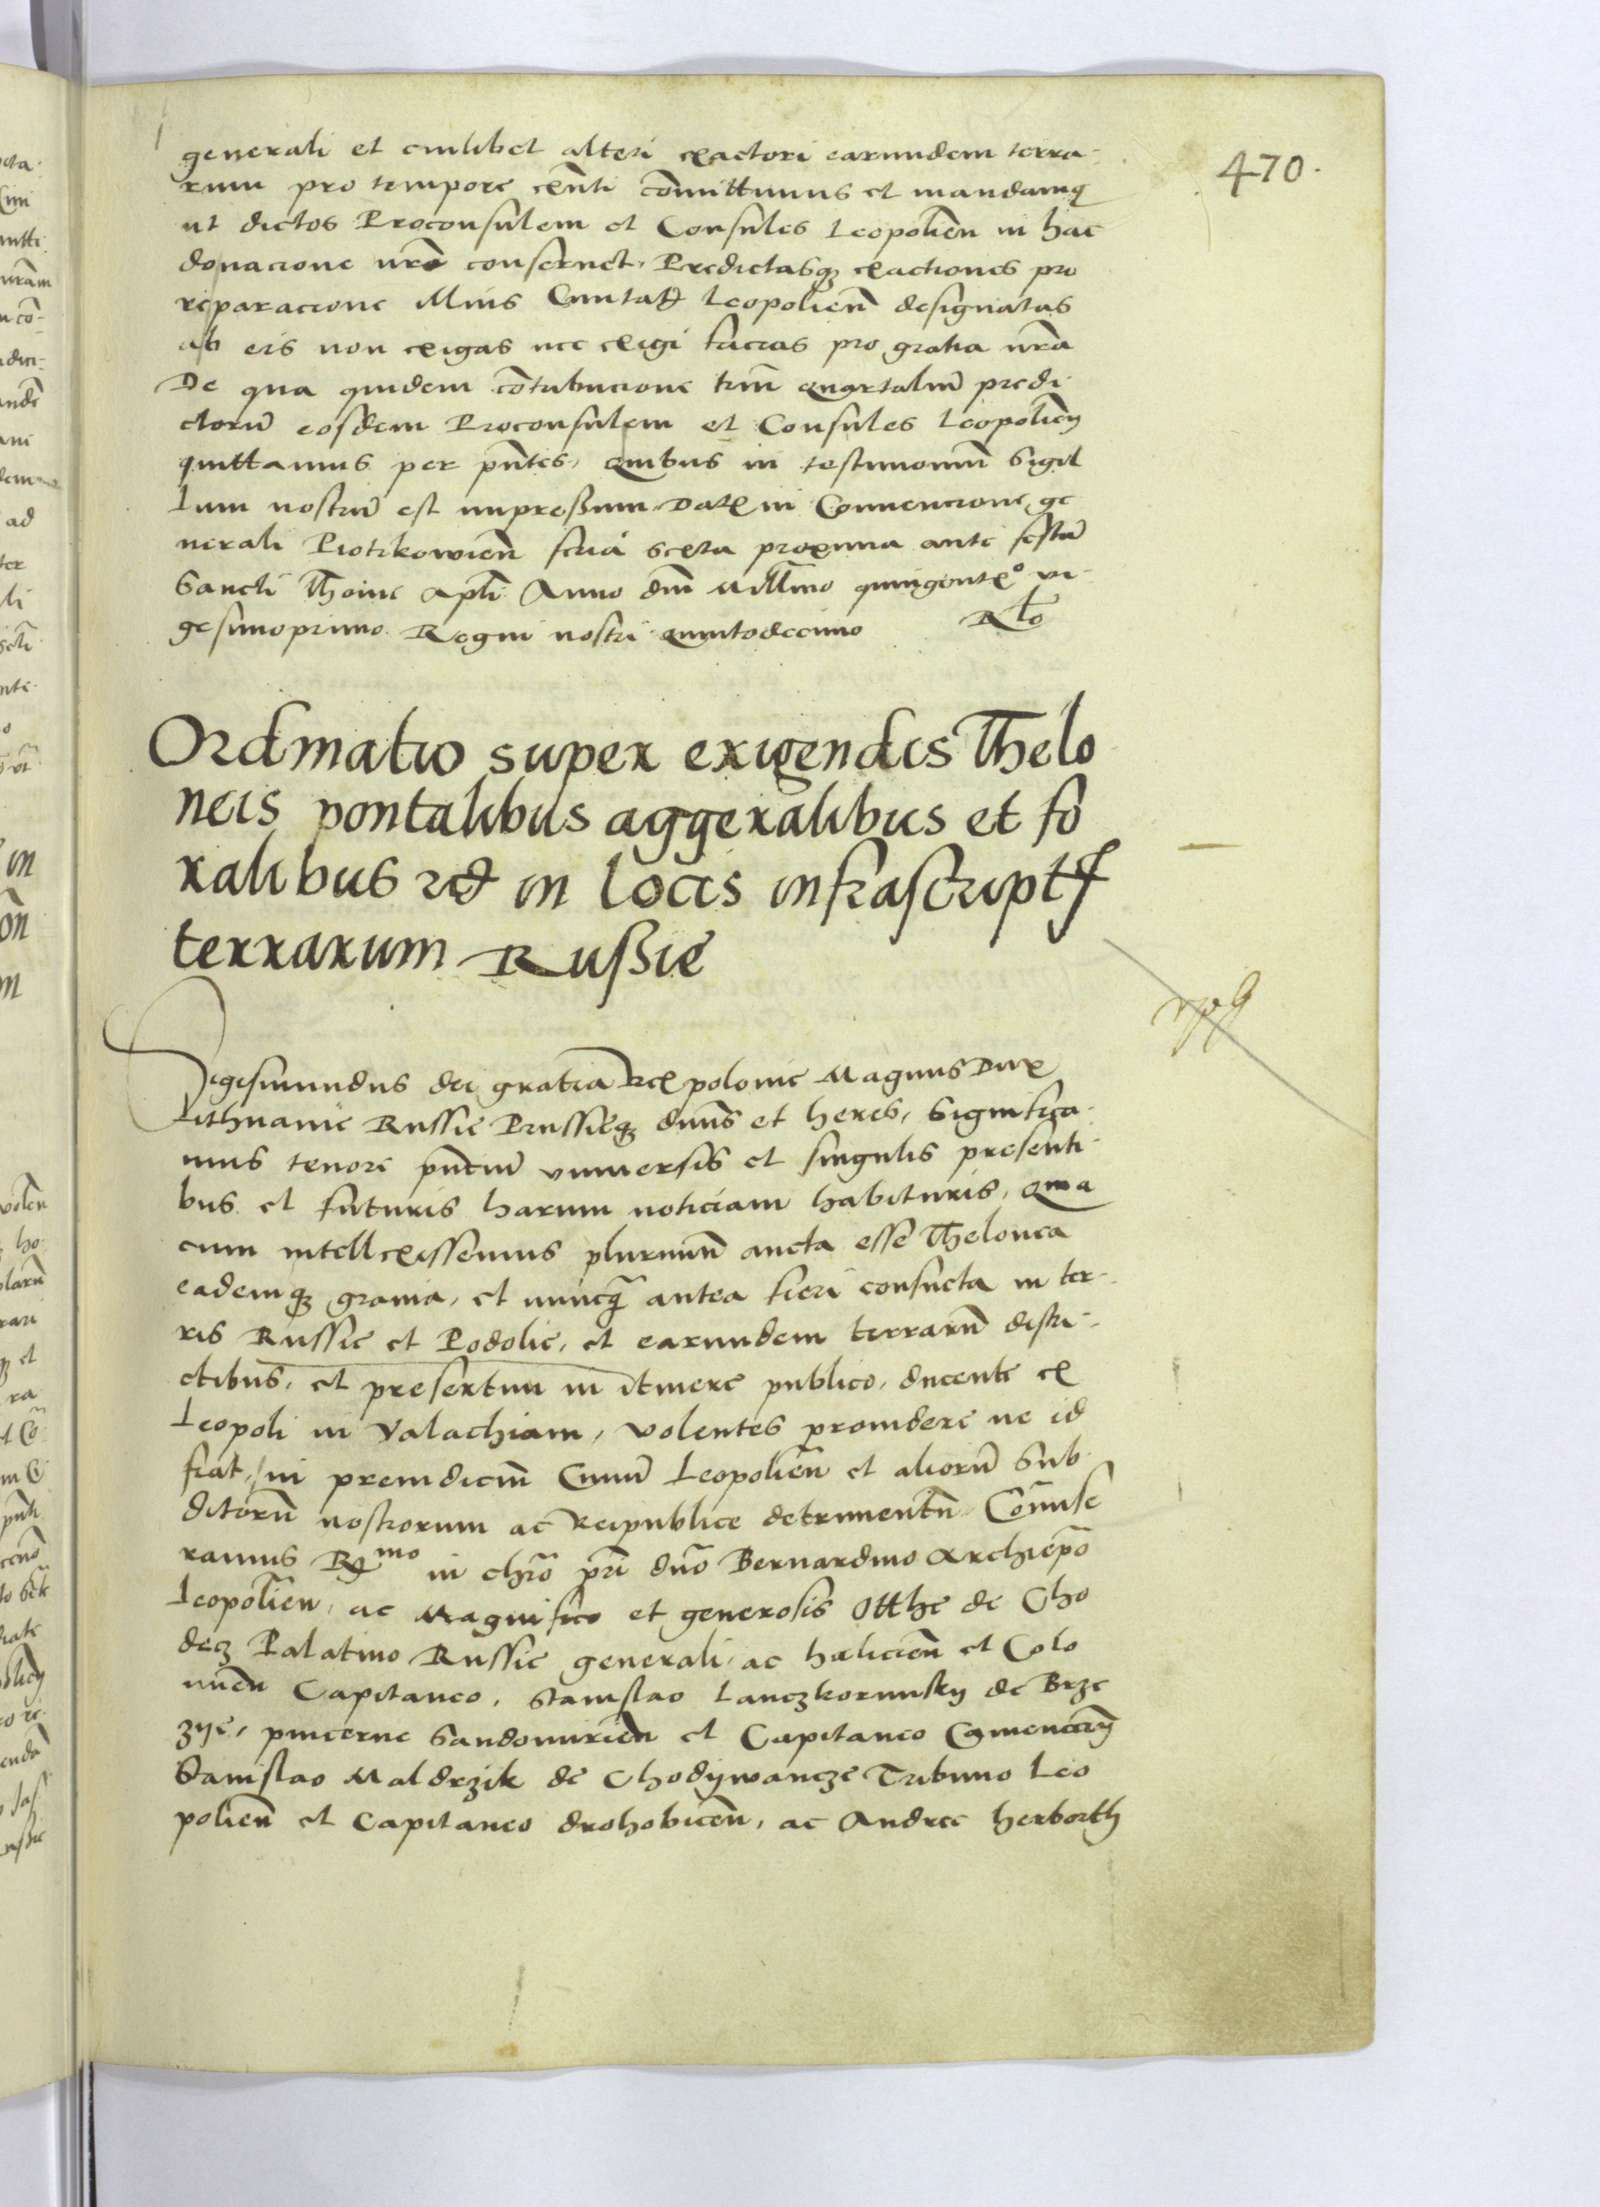 470.
generali et cuilibet alteri exactori earundem terra-
rum pro tempore exn̄ti cōmittimus et mandamq
ut dictos Proconsulem et Consules Leopolień in hac
donacione nrā conseruet, Predictasqʒ exactiones pro
reparacione illius Ciuitatis Leopolień designatas
ab eis non exigas nec exigi facias pro gratia nrā
De qua quidem cōtribucione triū quartaliū predi
ctorū eosdem Proconsulem et Consules Leopolień
quittamus per pn̄tes, quibus in testimoniū Sigil
lum nostrū est impressum Datum in Conuencione ge
nerali Piotrkowień feria sexta proxima ante festū
Sancti Thome Apl̄i Anno dn̄i Mill̄mo quingentexº vi-
gesimoprimo Regni nostri quintodecimo Rlo
Ordinatio super exigendis Thelo
neis pontalibus aggeralibus et fo
ralibus rc̄ in locis infrascriptis
terrarum Russie
Sigismundus dei gratia Rex polonie Magnus Dux
Lithuanie Russie Prussieqʒ dn̄us et heres, Significa-
mus tenore pn̄tiū vniuersis et singulis presenti-
bus et futuris harum noticiam habituris, Quia
cum intellexissemus plurimū aucta esse Thelonea
eademqʒ grauia, et nuncq̄ antea fieri consueta in ter-
ris Russie et Podolie, et earundem terrarū distri-
ctibus, et presertim in itinere publico, ducente ex
Leopoli in Valachiam, volentes prouidere ne id
fiat in preiudiciū Ciuiū Leopolień et aliorū Sub
ditorū nostrorum ac Reipublice detrimentū Cōmise
ramus Rmo in chrō pr̄i dn̄o Bernardino Archiep̄o
Leopolień, ac Magnifico et generosis Otthe de Cho
decz Palatino Russie generali, ac halicień et Colo
mień Capitaneo, Stanislao Lanczkorunsky de Brze
zye, pincerne Sandomirień et Capitaneo Cameneceń
Stanislao Maldrzik de Chodywancze Tribuno Leo
polień et Capitaneo drohobiceń, ac Andree herborth